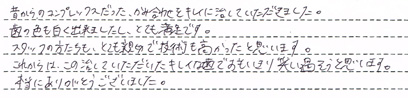 昔からのコンプレックスだった、かみ合わせをキレイに治していただきました。
歯の色も白く出来ましたし、とても満足です。
スタッフの方たちも、とても親切で技術も高かったと思います。
これからは、この治していただいたキレイな歯でおもいきり笑い過そうと思います。
本当にありがとうございました。